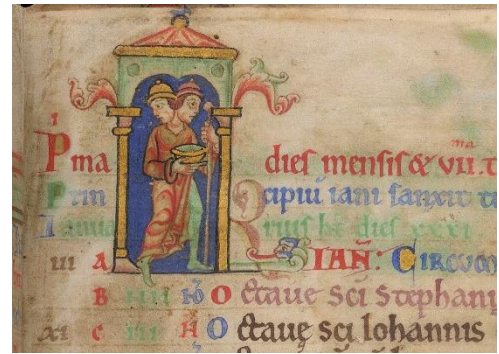 i ma
Pma dies mensis & vii. t
Prin cipiu iani sanxit
Ianua rius ht dies xxxi
iii A IAN̄: CIRCUM
B iiii Octaue sci stephani
xi c iii N Octauę sci Iohannis